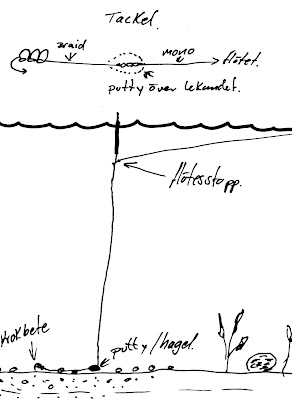 Tackel.
braid
mono
flötet.
putty över lekandet.
flötesstopp.
Krokbete
putty/hagel.